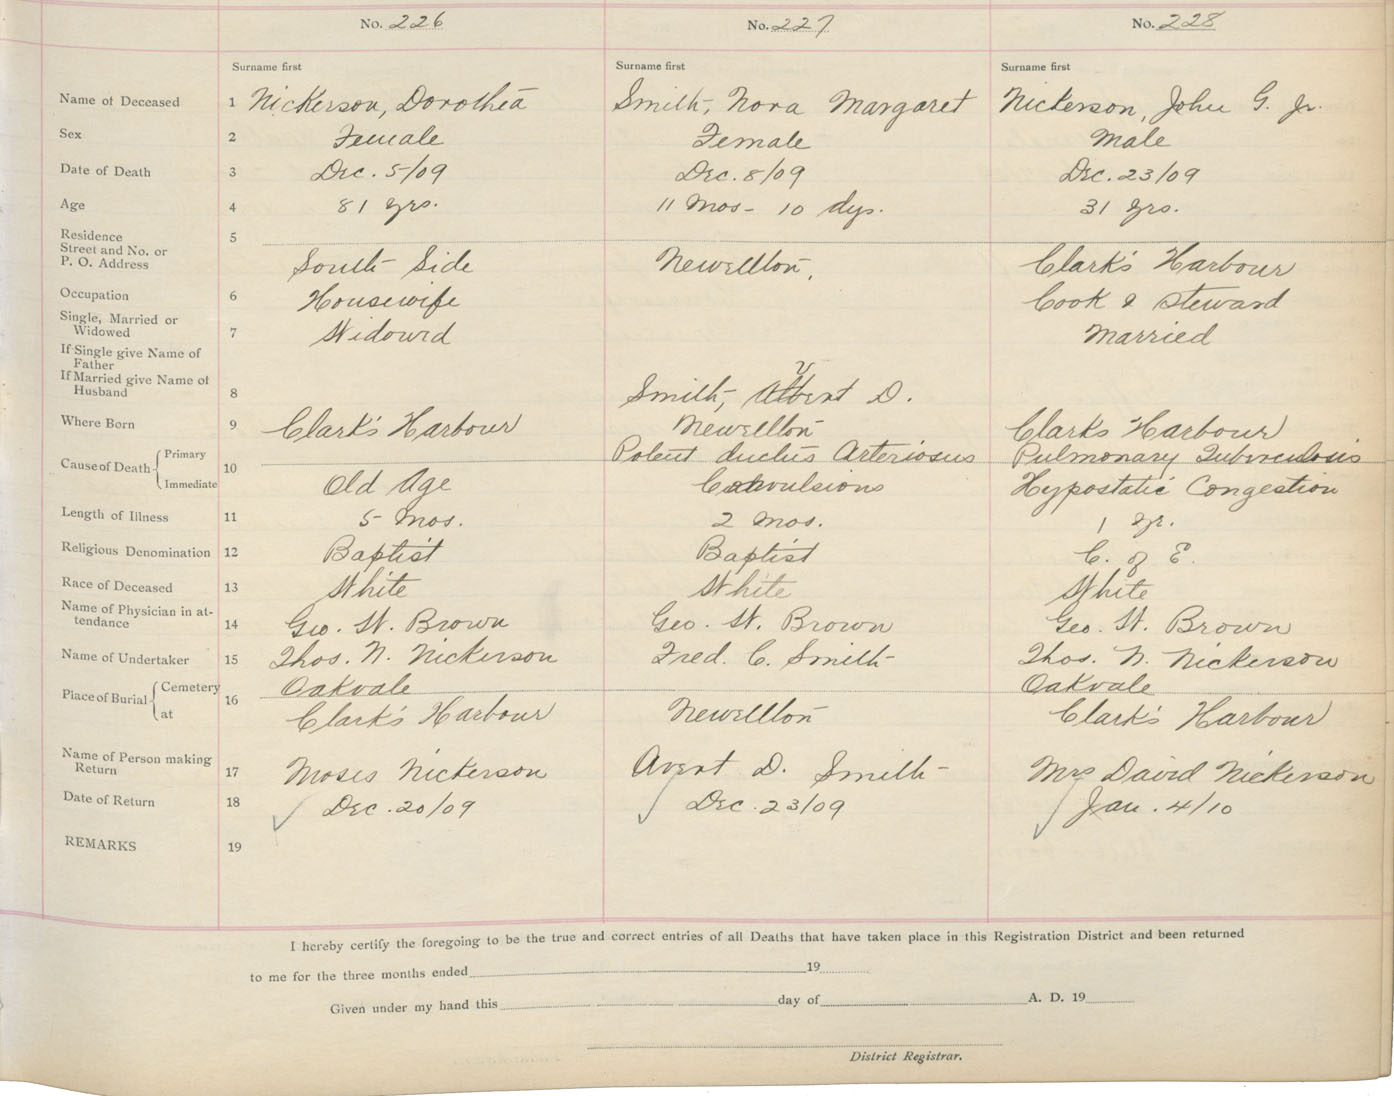 No. 226 No. 227 No. 228
Surname first Surname first Surname first
Name of Deceased 1 Nickerson, Dorothea Smith, Nora Margaret Nickerson, John G. Jr.
Sex 2 Female Female Male
Date of Death 3 Dec. 5/09 Dec. 8/09 Dec. 23/09
Age 4 81 yrs. 11 Mos - 10 dys. 31 yrs.
Residence 5
Street and No. or
P. O. Address South Side Newellton, Clark's Harbour
Occupation 6 Housewife Cook & Steward
Single, Married or
Widowed 7 Widowed Married
If Single give Name of
Father
If Married give Name of
Husband 8 Smith, Avert D.
Where Born 9 Clark's Harbour Newellton Clark's Harbour
Cause of Death Primary 10 Patent ductus Arteriosus Pulmonary Tuberculosis
Immediate Old Age Convulsions Hypostatic Congestion
Length of Illness 11 5 Mos. 2 mos. 1 yr.
Religious Denomination 12 Baptist Baptist C. of E.
Race of Deceased 13 White White White
Name of Physician in at-
tendance 14 Geo. W. Brown Geo. W. Brown Geo. W. Brown
Name of Undertaker 15 Thos. N. Nickerson Fred. C. Smith Thos. N. Nickerson
Place of Burial Cemetery 16 Oakvale Oakvale
at Clark's Harbour Newellton Clark's Harbour
Name of Person making
Return 17 Moses Nickerson Avert D. Smith Mrs David Nickerson
Date of Return 18 Dec. 20/09 Dec. 23/09 Jan. 4/10
REMARKS 19
I hereby certify the foregoing to be the true and correct entries of all Deaths that have taken place in this Registration District and been returned
to me for the three months ended 19
Given under my hand this day of A. D. 19
District Registrar.